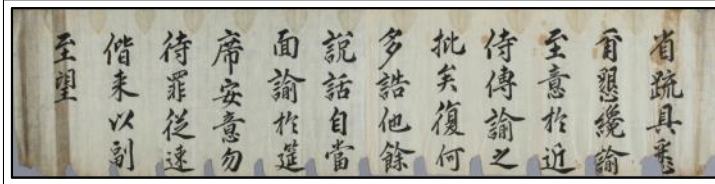 省疏具悉
爾懇纔諭
至意於近
侍傳諭之
批矣復何
多誥他餘
說話自當
面諭於筵
席安意勿
待罪從速
偕來以副
至望